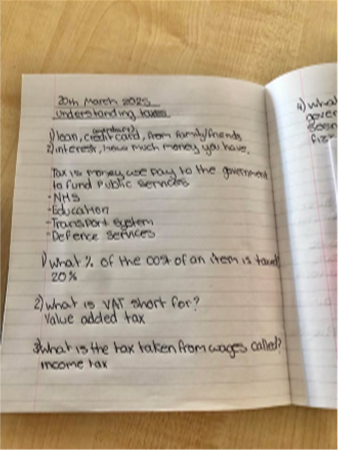 20th March 2025
Understanding taxes
overdraft,
1) loan, credit card, from family/friends
2) interest, how much money you have.
Tax is money we pay to the government
to fund public services
- NHS
- Education
- Transport system
- Defence services
1) What % of the cost of an item is taxed
20%
2) What is VAT short for?
Value added tax
3) What is the tax taken from wages called?
income tax
4) What
gover